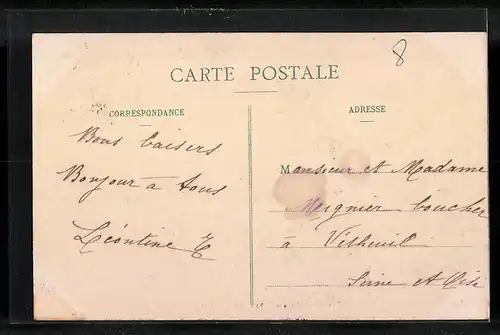 8
CARTE POSTALE
CORRESPONDANCE
ADRESSE
Bons baisers
Bonjour à tous
Léontine
Monsieur et Madame
Meignier boucher
à Vétheuil
Seine et Oise